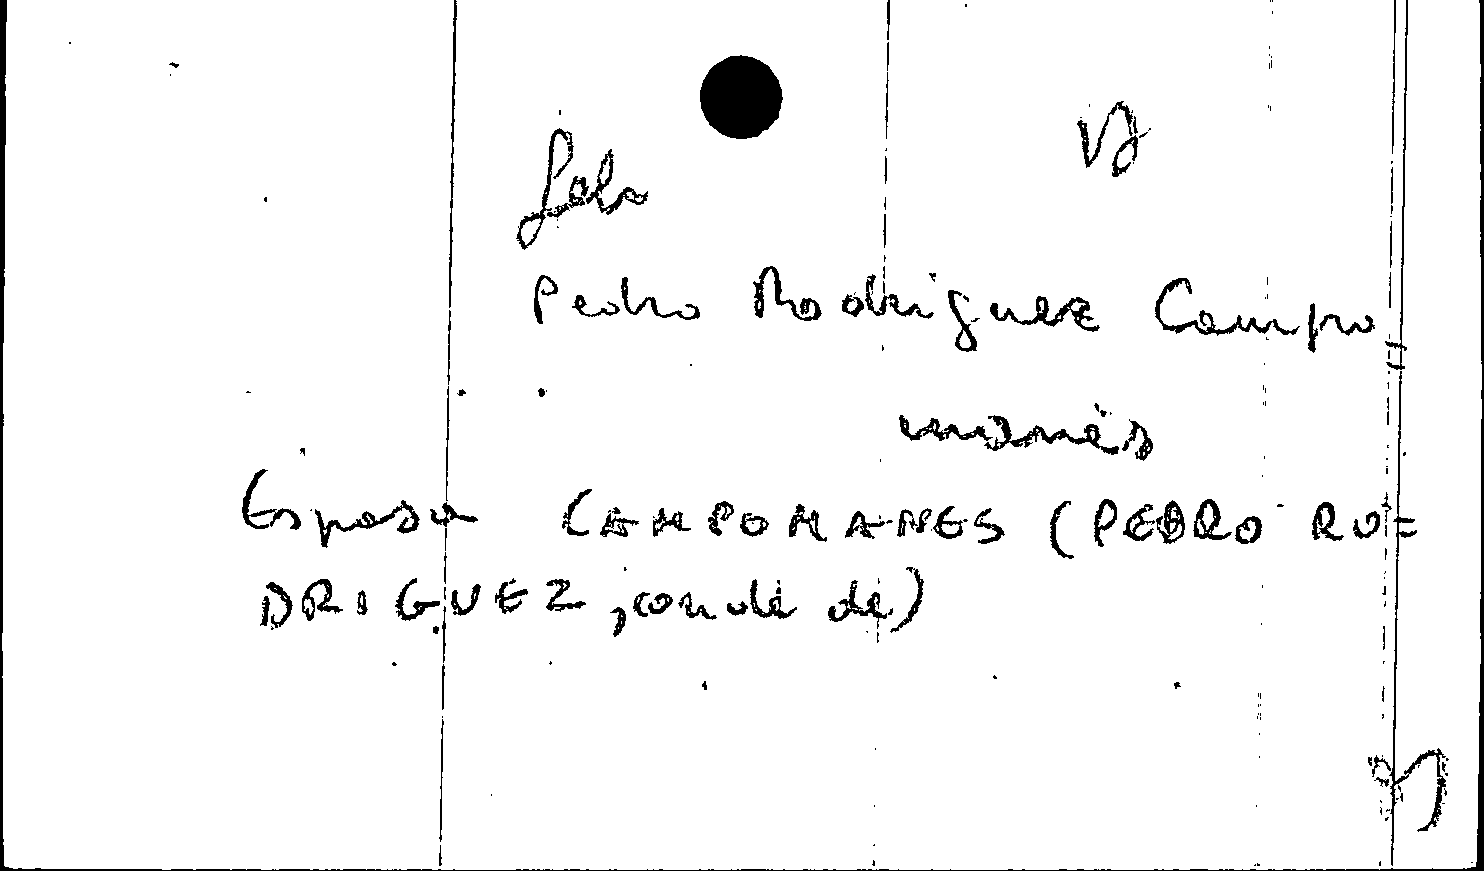 Pedro Rodriguez Campo=
manès
Espasa CAMPOMANES (PEDRO RO=
DRIGUEZ, conde de)